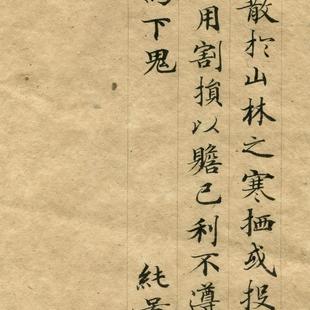 散於山林之寒栖或投
用割損以贍己利不遵
下鬼
純